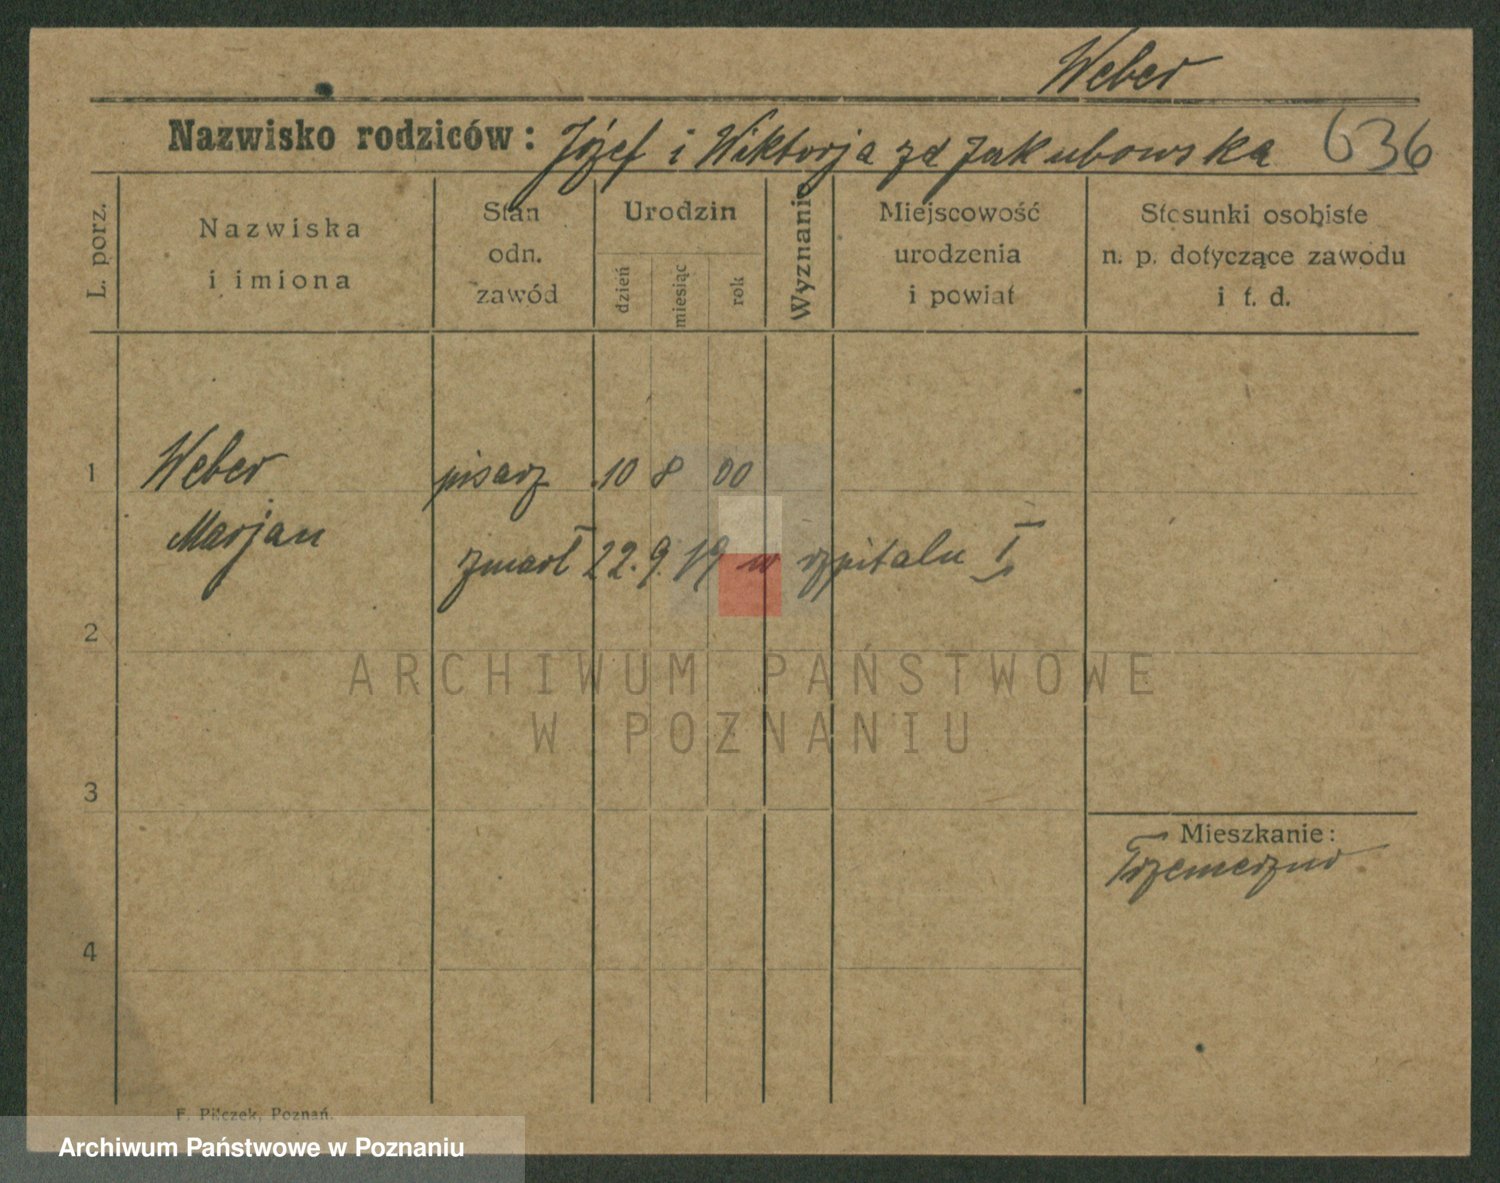 Weber
Nazwisko rodziców: Józef i Wiktorja zd Jakubowska 636
L. porz.
Nazwiska
i imiona
Stan
odn.
zawód
Urodzin
dzień
miesiąc
rok
Wyznanie
Miejscowość
urodzenia
i powiat
Stosunki osobiste
n. p. dotyczące zawodu
i t. d.
1 Weber pisarz 10 8 00
Marjan
zmarł 22.9.19 w szpitalu I
2
ARCHIWUM PAŃSTWOWE
W POZNANIU
3
Mieszkanie:
Trzemeszno
4
F. Pilczek, Poznań.
Archiwum Państwowe w Poznaniu